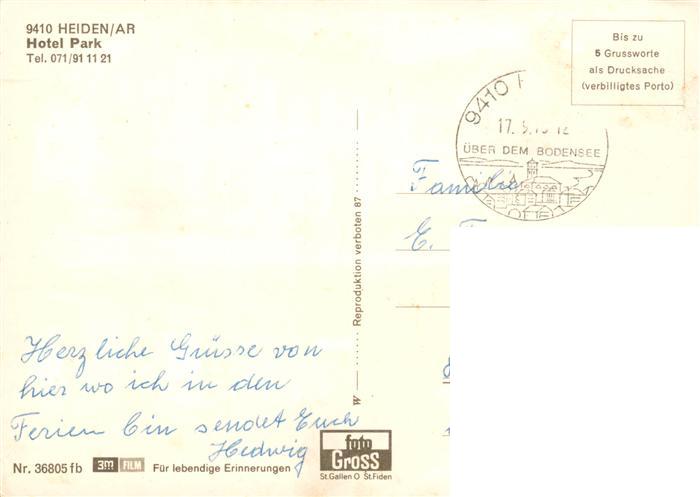 9410 HEIDEN/AR
Hotel Park
Tel. 071/91 11 21
Bis zu
5 Grussworte
als Drucksache
(verbilligtes Porto)
9410
17.
ÜBER DEM BODENSEE
Familie
E.
Reproduktion verboten 87
W
Herzliche Grüsse von
hier wo ich in den
Ferien bin sendet Euch
Hedwig
Nr. 36805 fb
3M FILM
Für lebendige Erinnerungen
foto
GROSS
St.Gallen O St.Fiden